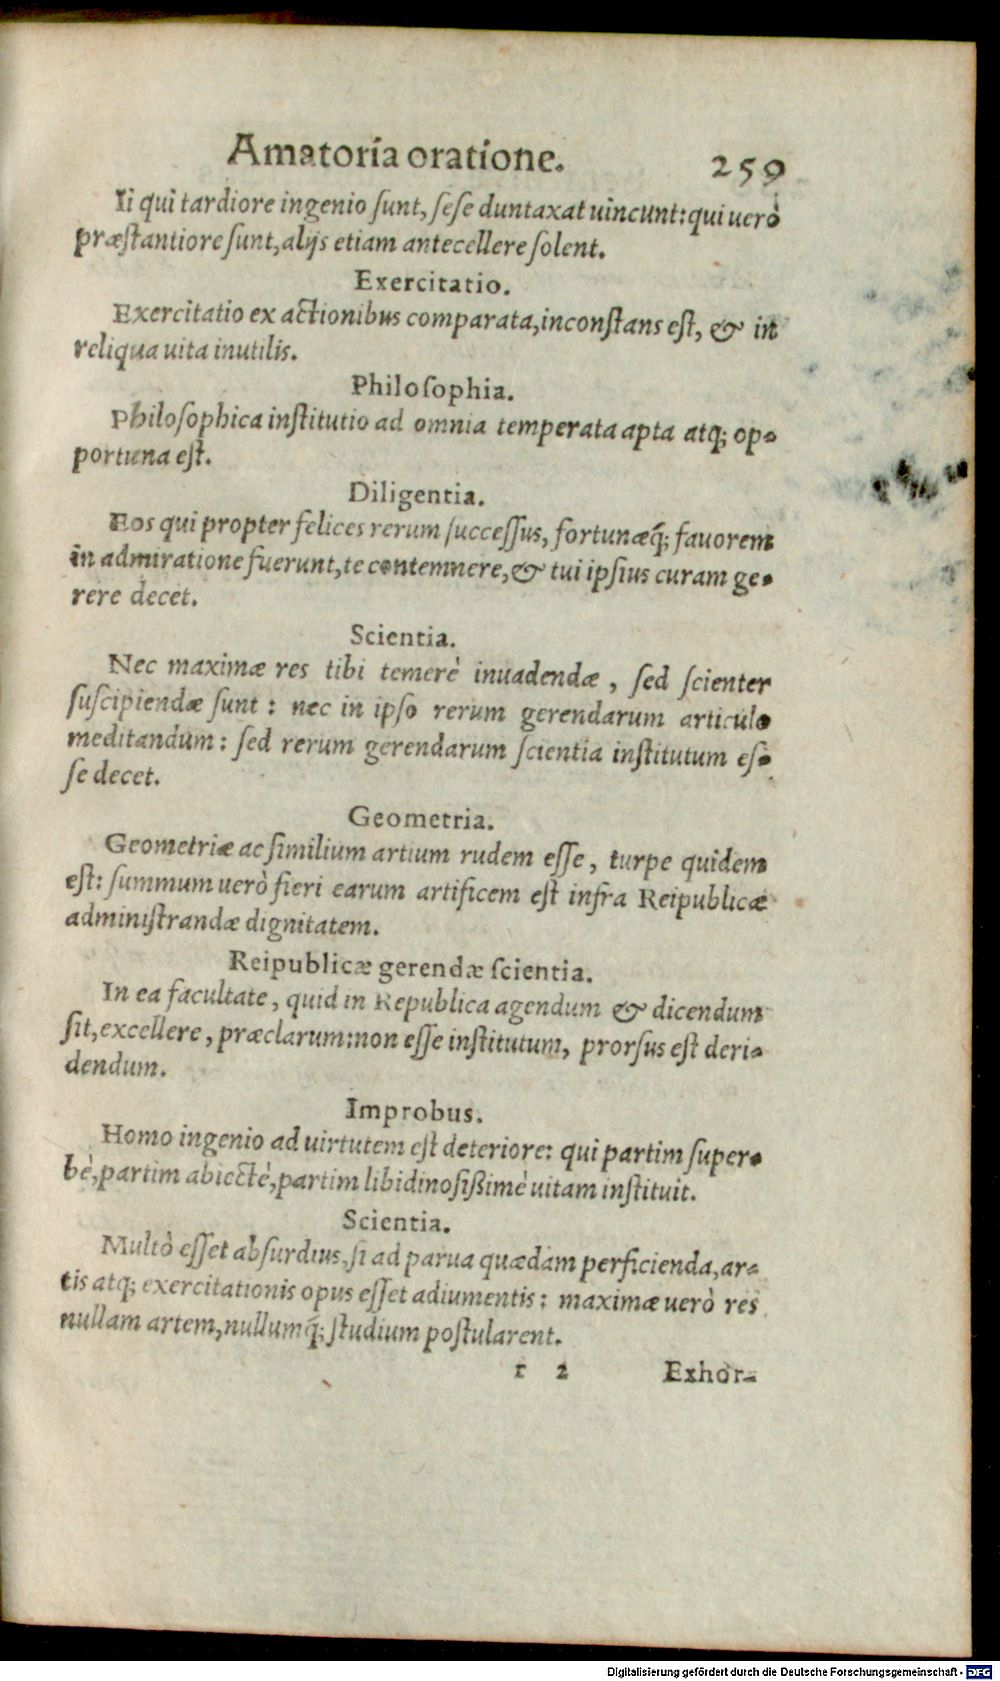 Amatoria oratione. 259
Ii qui tardiore ingenio ſunt, ſeſe duntaxat uincunt: qui uerò
præſtantiore ſunt, alijs etiam antecellere ſolent.
Exercitatio.
Exercitatio ex actionibus comparata, inconſtans eſt, & in
reliqua uita inutilis.
Philoſophia.
Philoſophica inſtitutio ad omnia temperata apta atq; op-
portuna eſt.
Diligentia.
Eos qui propter felices rerum ſucceſſus, fortunæq́; fauorem
in admiratione fuerunt, te contemnere, & tui ipſius curam ge-
rere decet.
Scientia.
Nec maximæ res tibi temerè inuadendæ, ſed ſcienter
ſuſcipiendæ ſunt: nec in ipſo rerum gerendarum articulo
meditandum: ſed rerum gerendarum ſcientia inſtitutum eſ-
ſe decet.
Geometria.
Geometriæ ac ſimilium artium rudem eſſe, turpe quidem
eſt: ſummum uerò fieri earum artificem eſt infra Reipublicæ
adminiſtrandæ dignitatem.
Reipublicæ gerendæ ſcientia.
In ea facultate, quid in Republica agendum & dicendum
ſit, excellere, præclarum: non eſſe inſtitutum, prorſus eſt deri-
dendum.
Improbus.
Homo ingenio ad uirtutem eſt deteriore: qui partim ſuper-
bè, partim abiectè, partim libidinoſißimè uitam inſtituit.
Scientia.
Multò eſſet abſurdius, ſi ad parua quædam perficienda, ar-
tis atq; exercitationis opus eſſet adiumentis: maximæ uerò res
nullam artem, nullumq́; ſtudium poſtularent.
r 2 Exhor-
Digitalisierung gefördert durch die Deutsche Forschungsgemeinschaft - DFG